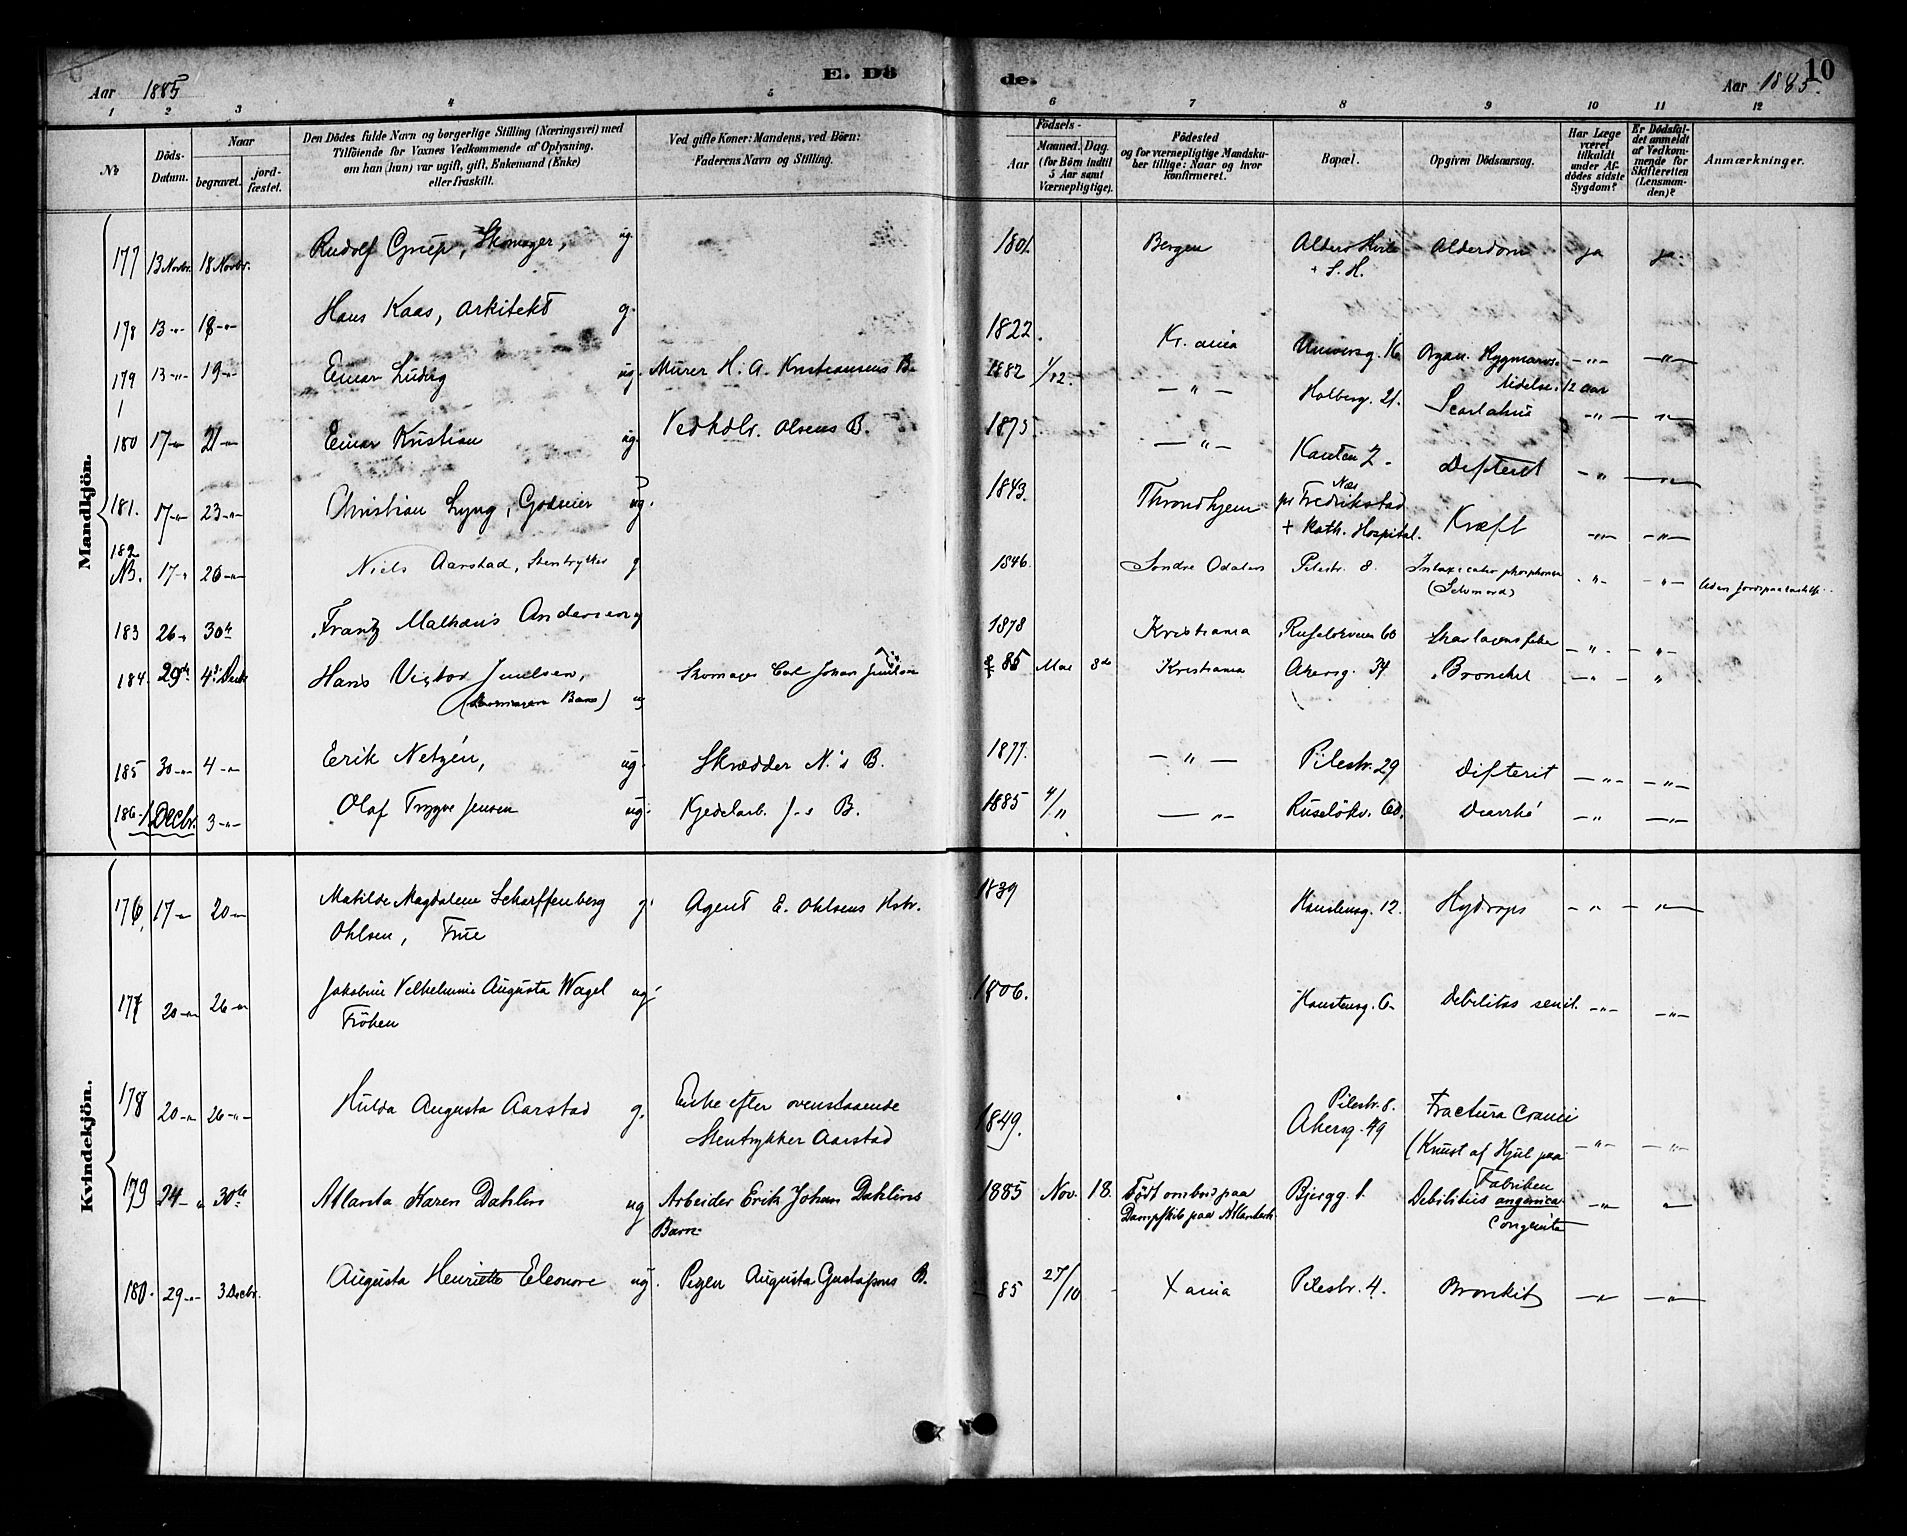 Aar 1885
E. Dö
de.
Aar 1885.
10
1 2 3 4 5 6 7 8 9 10 11 12
No
Döds-Datum.
Naar
begravet.
jord-fæstet.
Den Dödes fulde Navn og borgerlige Stilling (Næringsvei) med
Tilföiende for Voxnes Vedkommende af Oplysning,
om han (hun) var ugift, gift, Enkemand (Enke)
eller fraskilt.
Ved gifte Koner: Mandens, ved Börn:
Faderens Navn og Stilling.
Födsels-
Aar
Maaned. Dag.
(for Börn indtil
5 Aar samt
Værnepligtige).
Födested
og for værnepligtige Mandska-
ber tillige: Naar og hvor
konfirmeret.
Bopæl.
Opgiven Dödsaarsag.
Har Læge
været
tilkaldt
under Af-
dödes sidste
Sygdom?
Er Dödsfal-
det anmeldt
af Vedkom-
mende for
Skifteretten
(Lensman-
den)?
Anmærkninger.
Mandkjön.
177 13 Novbr. 18 Novbr. Rudolf Skomager, ug. 1801. Bergen Alders Hvile Alderdom ja ja.
+ S. H.
178 13 -"- 18 -"- Hans Kaas, Arkitekt g. 1822. Kr.ania Universg. 16 Organ. -"- -"-
lidelse. 12 aar
179 13 -"- 19 -"- Einar Ludvig ug. Murer H. A. Kristiansens B. 1882 1/12. - " - Holberg. 21. -"- -"-
180 17 -"- 21 -"- Einar Kristian ug. Vedhdlr. Olsens B. 1875 - " - Difterit -"- -"-
181. 17 -"- 23 -"- Christian Lyng, ug. 1843. Throndhjem Næs
pr Fredrikstad Kræft -"- -"-
+ Kath. Hospital.
182
NB. 17 -"- 26 -"- Niels Aarstad, Stentrykker g 1846. Söndre Odalen Pilestr. 8. -"- -"-
(Selvmord)
183 26 -"- 30te Frantz Mathæus Andersen ug 1878 Kristiania Ruselökveien 60 Skarlagensfeber -"- -"-
184 29de 4de Decbr Hans Victor Juulsen, Skomager Carl Johan Juulsen 85 Mai 8de Kristiania Akersg. 34 Bronchit -"- "
(Skomagers Barn) ug
185 30 -"- 4 -"- Erik Netzén, ug. Skrædder N.'s B. 1877. - " - Pilestr. 29 Difterit -"- -"-
186 1 Decbr. 3 -"- Olaf Trygve Jensen ug. Kjedelarb. J-s B. 1885 4/11 - " - Ruselökv. 60. Diarrhé -"- -"-
Kvindekjön.
176, 17 -"- 20 -"- Matilde Magdalene Scharffenberg g. Agent E. Ohlsens Hstr. 1839 12. Hydrops -"- -"-
Ohlsen, Frue
177 20 -"- 26 -"- Jakobine Velhelmine Augusta Wagel ug. 1806. 6- Debilitas senil. -"- -"-
Fröken
178 20 -"- 26 -"- Hulda Augusta Aarstad g. Enke efter ovenstaaende 1849. Pilestr. 8. Fractura Cranii
Stentrykker Aarstad Akersg. 49 (Knust af Hjul paa -"- -"-
Fabriken
179 24 -"- 30te Atlanta Karen Dahlin ug Arbeider Erik Johan Dahlins 1885 Nov. 18. Född ombord paa Bjergg. 1. Debilitas -"- "
Barn Dampskib paa Atlanterh. Congenita
180. 29 -"- 3 Decbr. Augusta Henriette Eleonore ug. Pigen Augusta Gustafsons B. 85 27/10 Xania Pilestr. 4. Bronkit -"- -"-